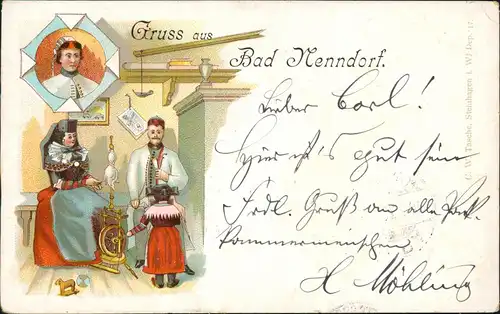 Gruss aus
Bad Nenndorf.
Lieber Carl!
Hier ist's gut sein
Frdl. Gruß an alle
H Möhling
C. W. Tasche, Steinhagen i. W. Dep. 17.